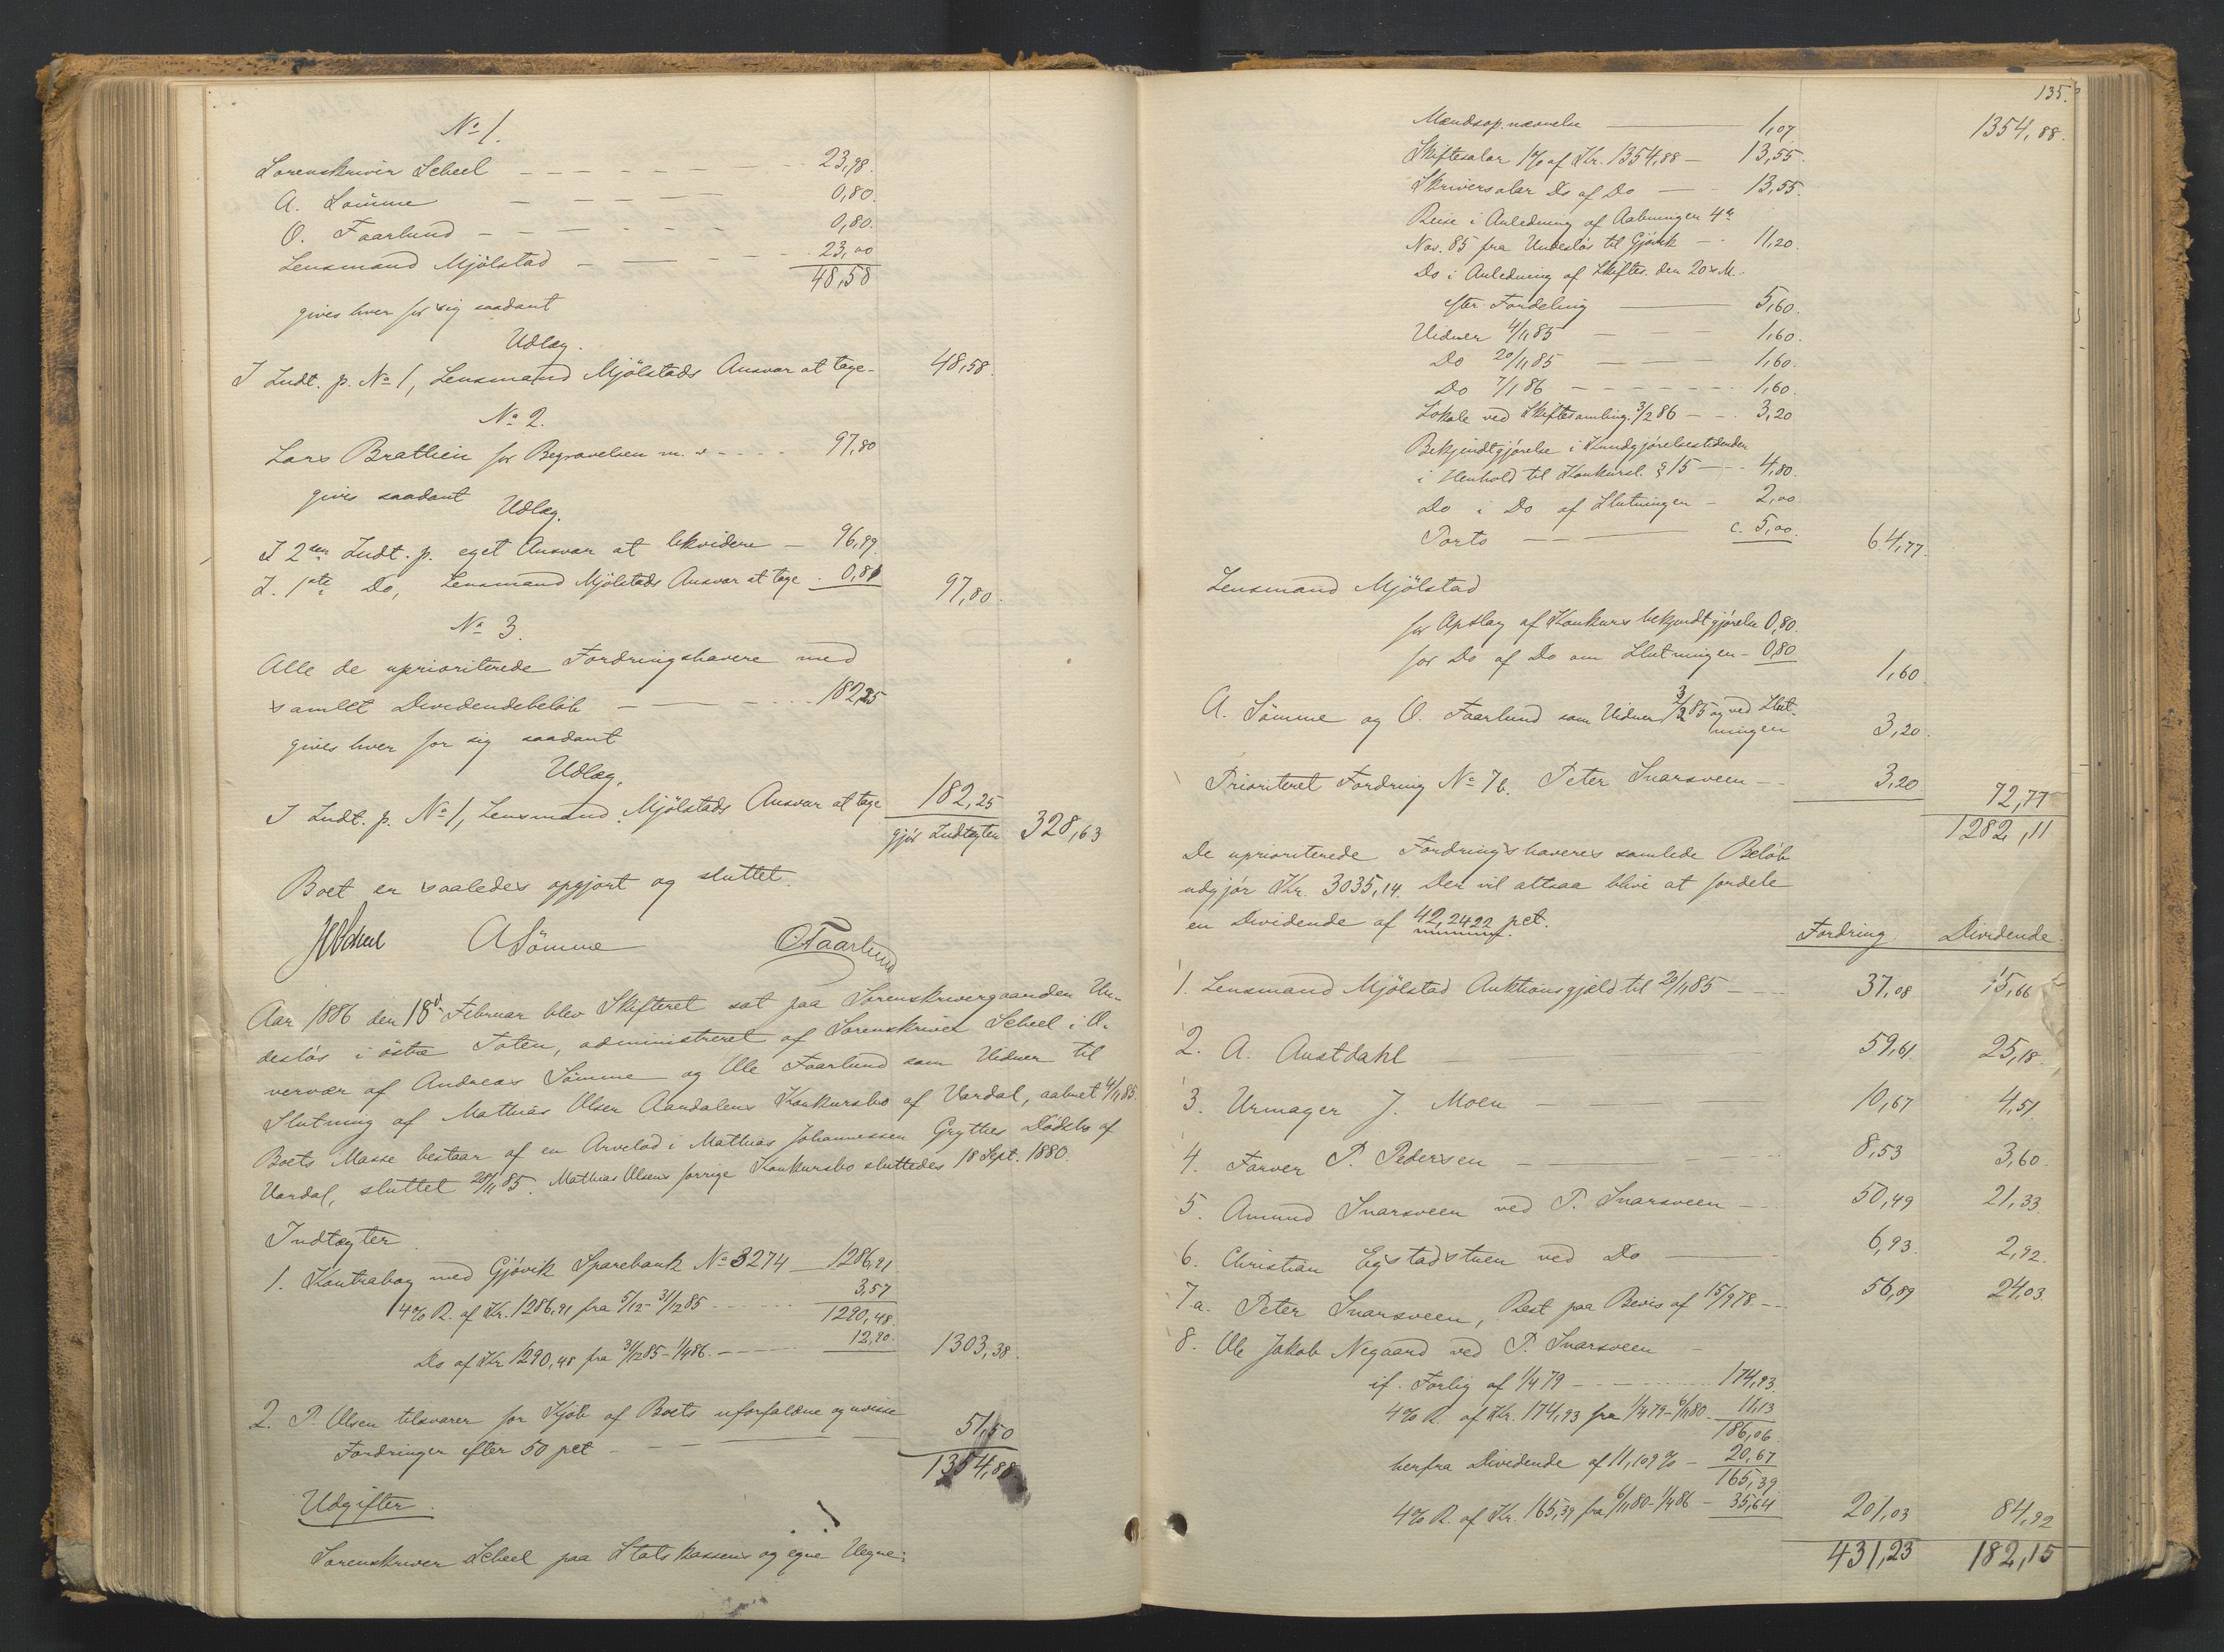 No 1.
Sorenskriver Scheel — — — — 23,98.
A. Sömme — — — — 0,80.
O. Faarlund — — — — 0,80.
Lensmand Mjölstad — — — — 23,00
48,58
gives hver for sig saadant
Udlæg.
I Indt. p. No 1, Lensmand Mjölstads Ansvar at tage - 48,58.
No 2.
Lars Brathien for Begravelsen m. v. - - - 97,80
gives saadant
Udlæg.
I 2den Indt. p. eget Ansvar at likvidere — 96,99.
I. 1ste Do, Lensmand Mjölstads Ansvar at tage . 0,81 97,80.
No 3.
Alle de uprioriterede Fordringshavere med
samlet Dividendebeløb — — — 182,25
gives hver for sig saadant
Udlæg.
I Indt. p. No 1, Lensmand Mjölstads Ansvar at tage 182,25
gjør Indtægten 328,63
Boet er saaledes opgjort og sluttet.
Scheel ASömme OFaarlund
Aar 1886 den 18de Februar blev Skifteret sat paa Sorenskrivergaarden Un-
desløs i østre Toten, administreret af Sorenskriver Scheel i O-
vervær af Andreas Sömme og Ole Faarlund som Vidner til
Slutning af Mathias Olsen Aandalens Konkursbo af Vardal, aabnet 4/11 85.
Boets Masse bestaar af en Arvelod i Mathias Johannessen Grythes Dødsbo af
Vardal, sluttet 20/11 85. Mathias Olsens forrige Konkursbo sluttedes 18 Sept. 1880.
Indtægter
1. Kontrabog med Gjøvik Sparebank No 3274 — 1286,91
4% R. af Kr. 1286,91 fra 5/12 - 31/12 85 - - - 3,57
1290,48.
Do af Kr 1290,48 fra 31/12 85 - 1/4 86. — — 12,90. 1303,38.
2. P. Olsen tilsvarer for Kjøb af Boets uforfaldne og uvisse
Fordringer efter 50 pct - — — 51,50
1354,88.
Udgifter.
Sorenskriver Scheel paa Statskassens og egne Vegne:
135.
Mændsopnævnelse — 1,07 1354,88.
Skiftesalær 1% af Kr. 1354,88 — 13,55.
Skriversalær Do af Do — 13,55.
Reise i Anledning af Aabningen 4de
Nov. 85 fra Undesløs til Gjøvik — 11,20.
Do i Anledning af Skiftes. den 20 s. M.
efter Fordeling — 5,60.
Vidner 4/11 85 — — — 1,60.
Do 20/11 85 — — — 1,60.
Do 7/1 86 - - - - - 1,60.
Lokale ved Skiftesamling. 3/2 86 — - 3,20
Bekjendtgjørelse i Kundgjørelsestidenden
i Henhold til Konkursl. § 15 — - 4,80.
Do i Do af Slutningen — 2,00
Porto — — — c. 5,00. 64,77.
Lensmand Mjölstad
for Opslag af Konkurs bekjendtgjørelse 0,80.
for Do af Do om Slutningen - 0,80 1,60
A. Sömme og O. Faarlund som Vidner 3/2 85 og ved Slut-
ningen 3,20.
Prioriteret Fordring No 7b. Peter Snarsveen — 3,20. 72,77
1282,11
De uprioriterede Fordringshaveres samlede Beløb
udgjør Kr. 3035,14. Der vil altsaa blive at fordele
en Dividende af 42,2422 pct.
Fordring Dividende.
1. Lensmand Mjölstad Auktionsgjæld til 20/11 85 — 37,08 15,66
2. A. Austdahl — 59,61 25,18.
3. Urmager J. Moen — 10,67 4,51.
4. Farver P. Pedersen — 8,53 3,60.
5. Amund Snarsveen ved P. Snarsveen — 50,49 21,33.
6. Christian Egstadstuen ved Do — 6,93. 2,92.
7a. Peter Snarsveen, Rest paa Bevis af 15/9 78 - - 56,89 24,03.
8. Ole Jakob Negaard ved P. Snarsveen -
if. Forlig af 1/4 79 — 174,93.
4% R. af Kr. 174,93 fra 1/4 79 - 6/11 80 - 11,13
186,06.
herfra Dividende af 11,109% — 20,67
165,39
4% R. af Kr. 165,39 fra 6/11 80 - 1/4 86 - 35,64 201,03 84,92
431,23 182,15